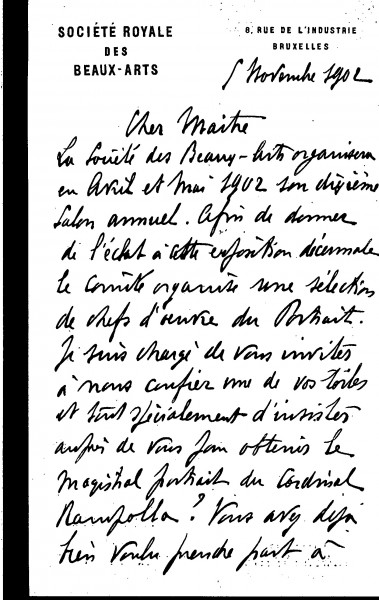 SOCIÉTÉ ROYALE
DES
BEAUX-ARTS
8, RUE DE L'INDUSTRIE
BRUXELLES
5 Novembre 1902
Cher Maitre
La Société des Beaux-Arts organisera
en Avril et Mai 1902 son dixième
Salon annuel. Afin de donner
de l'éclat à cette exposition décennale
le Comité organise une sélection
de chefs d'œuvre du Portrait.
Je suis chargé de vous inviter
à nous confier une de vos toiles
et tout spécialement d'insister
auprès de vous pour obtenir le
magistral portrait du Cardinal
Rampolla ? Vous avez déjà
bien voulu prendre part à